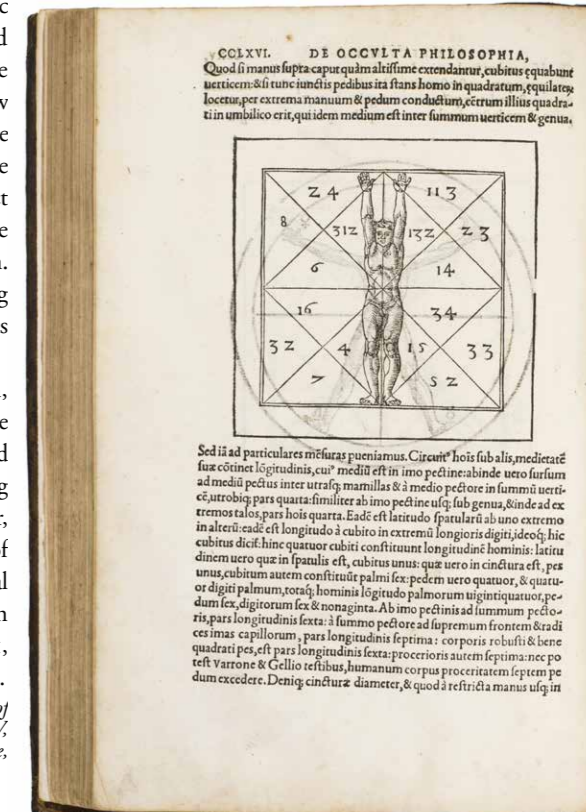 CCLXVI. DE OCCVLTA PHILOSOPHIA,
Quod ſi manus ſupra caput quàm altiſſime extendantur, cubitus ęquabunt
uerticem: & ſi tunc iunctis pedibus ita ſtans homo in quadratum, ęquilaterę
locetur, per extrema manuum & pedum conductum, cētrum illius quadra-
ti in umbilico erit, qui idem medium eſt inter ſummum uerticem & genua.
24 113
8 312 132 23
6 14
16 34
32 4 15 33
7 52
Sed iā ad particulares mēſuras pueniamus. Circuit⁹ hoīs ſub alis, medietatē
ſuæ cōtinet lōgitudinis, cui⁹ mediū eſt in imo pectine: abinde uero ſurſum
ad mediū pectus inter utraſq; mamillas & à medio pectore in ſummū uerti-
cē, utrobiq; pars quarta: ſimiliter ab imo pectine uſq; ſub genua, & inde ad ex
tremos talos, pars hoīs quarta. Eadē eſt latitudo ſpatularū ab uno extremo
in alterū: eadē eſt longitudo à cubito in extremū longioris digiti, ideoq; hic
cubitus dicit: hinc quatuor cubiti conſtituunt longitudinē hominis: latitu
dinem uero quæ in ſpatulis eſt, cubitus unus: quæ uero in cinctura eſt, pes
unus, cubitum autem conſtituūt palmi ſex: pedem uero quatuor, & quatu-
or digiti palmum, totaq; hominis lōgitudo palmorum uigintiquatuor, pe-
dum ſex, digitorum ſex & nonaginta. Ab imo pectinis ad ſummum pecto-
ris, pars longitudinis ſexta: à ſummo pectore ad ſupremum frontem & radi
ces imas capillorum, pars longitudinis ſeptima: corporis robuſti & bene
quadrati pes, eſt pars longitudinis ſexta: procerioris autem ſeptima: nec po
teſt Varrone & Gellio teſtibus, humanum corpus proceritatem ſeptem pe
dum excedere. Deniq; cincturæ diameter, & quod à reſtricta manus uſq; in